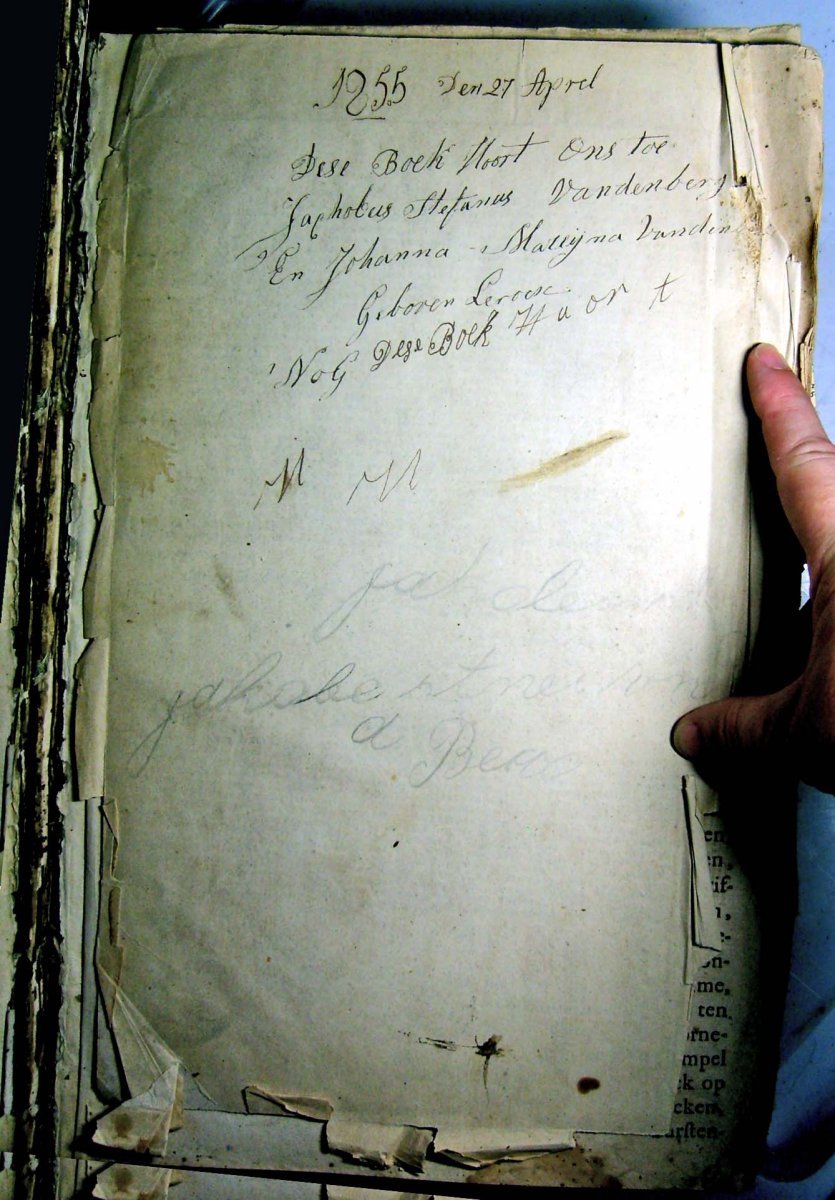 1855 Den 27 Aprel
Dese Boek Hoort Ons toe
Japhobus Stefanus Vandenberg
En Johanna Mattijna Vanden
Geboren Leroex
NoG Dese Boek H u or t
M M
jakobe
d Bero
en
en,
rif-
1,
e-
on-
me,
ten
rne-
mpel
ck op
cken,
urſten-